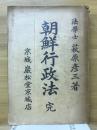 法學士 萩原彦三著
朝鮮行政法 完
京城 巖松堂京城店